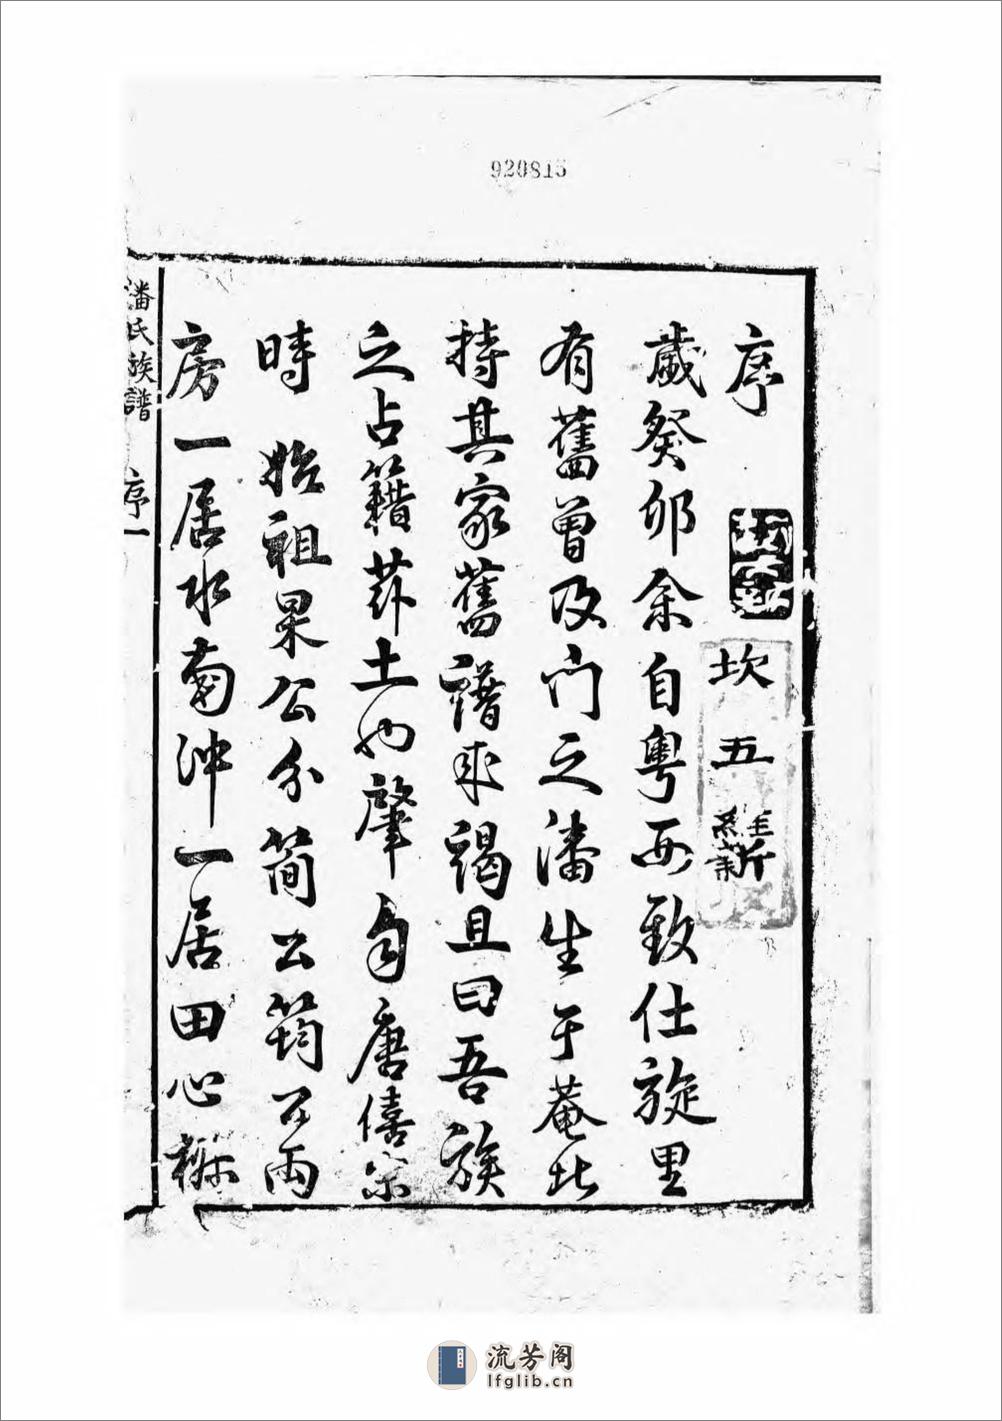 920815
序
坎五
維新
歲癸卯余自粵西致仕旋里
有舊曾及门之潘生于菴北
持其家舊譜来謁且曰吾族
之占籍茲土也肇自唐僖宗
時 始祖杲公分简公筠公兩
房一居水南沖一居田心
潘氏族譜 序一
流芳阁
lfglib.cn